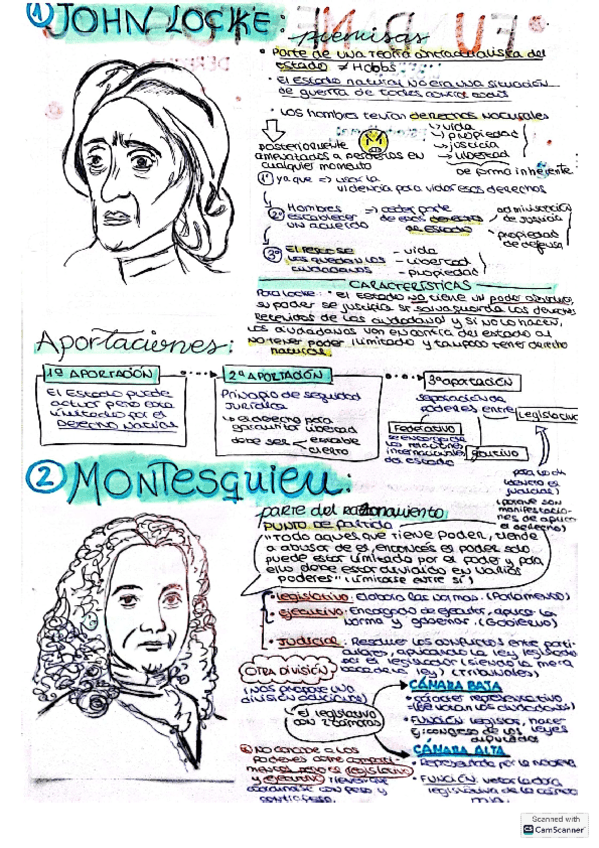 1) JOHN LOCKE:
premisas
• Parte de una teoría contractualista del
estado ≠ Hobbs
• El Estado natural no era una situación
de guerra de todos contra todos
• Los hombres tenían derechos naturales
→ vida
→ propiedad
→ justicia
→ libertad
de forma inherente
posteriormente
amenazados a perderlos en
cualquier momento
1º ya que => usar la
violencia para violar esos derechos
2º Hombres => ceder parte
establecer de esos derechos
un acuerdo al estado
administración
de justicia
propiedad
de defensa
3º El resto se
los quedan los
ciudadanos
- vida
- libertad
- propiedad
CARACTERÍSTICAS
Para Locke: • El Estado no tiene un poder absoluto,
su poder se justifica si salvaguarda los derechos
retenidos de los ciudadanos y si no lo hacen,
los ciudadanos van en contra del estado al
no tener poder ilimitado y tampoco tener derecho
natural
Aportaciones:
1º APORTACIÓN
El Estado puede
actuar pero está
limitado por el
Derecho Natural
2º APORTACIÓN
Principio de seguridad
jurídica
↳ el derecho para
garantizar libertad
debe ser estable
cierto
3º aportación
separación de
poderes entre
Legislativo
Federativo
se encarga de
las relaciones
internacionales
del estado
Ejecutivo
judicial)
(porque son
manifestacio-
nes de aplicar
el derecho)
2 MONTESQUIEU:
parte del razonamiento
PUNTO de partida
"Todo aquel que tiene poder, tiende
a abusar de él, entonces el poder solo
puede estar limitado por el poder y para
ello debe estar dividido en varios
poderes" (limitarse entre sí)
• Legislativo: Elabora las normas. (Parlamento)
• Ejecutivo: Encargado de ejecutar, aplica la
norma y gobernar. (Gobierno)
• Judicial: Resuelve los conflictos entre parti-
culares, aplicando la ley
por el legislador (siendo la mera
boca de la ley) (Tribunales)
OTRA DIVISIÓN
(Nos propone una
división adicional)
el legislativo
con 2 cámaras
CÁMARA BAJA
• carácter representativo
(la eligen los ciudadanos)
• FUNCIÓN: legislar, hacer
las leyes
CÁMARA ALTA
• Representada por la nobleza
• FUNCIÓN: vetar la labor
legislativa de la cámara
No concibe a los
poderes como
legislativo
y ejecutivo
Scanned with
CamScanner